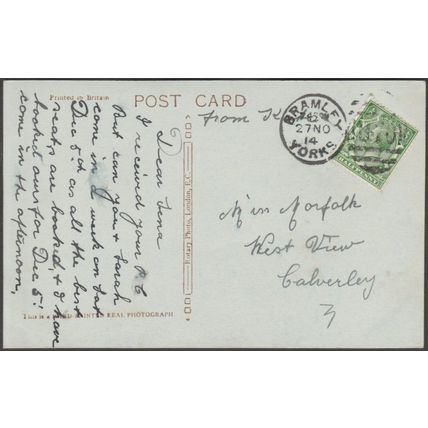 Printed in Britain
POST CARD
from K
BRAMLEY
27 NO
14
YORKS
HALFPENNY
Dear Lena
I received your P.C
But can you & Sarah
come in a week on Sat
Dec 5th as all the best
seats are booked, & I have
booked ours for Dec 5th
come in the afternoon,
Rotary Photo, London, E.C.
This is a HAND-PAINTED REAL PHOTOGRAPH
Miss Norfolk
West View
Calverley